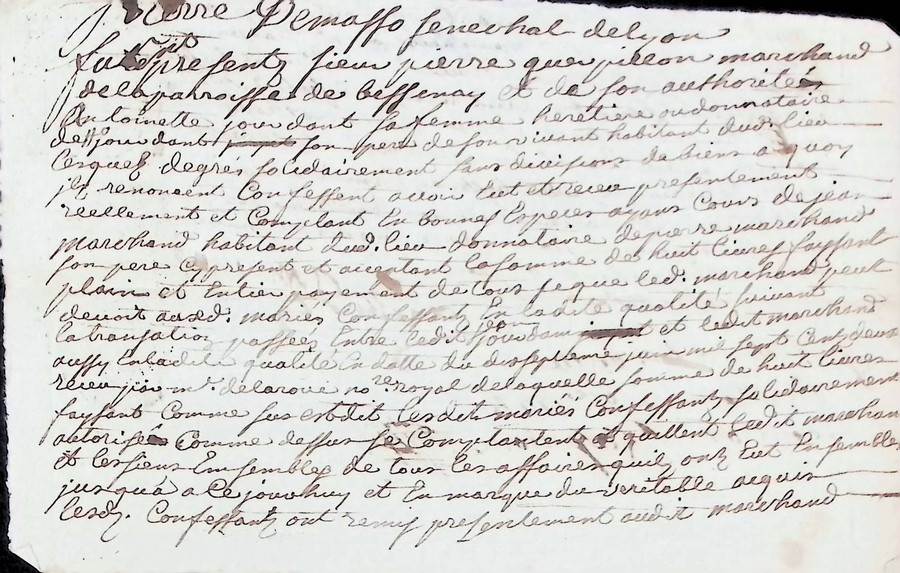 Pierre Demasso senechal de lyon
furent presentz sieur pierre querpillon marchand
de la parroisse de bessenay et de son authorité
Antoinette jourdant sa femme heretiere ou donnataire
de Hn jourdant son pere de son vivant habitant dud. lieu
lesquelz degrés solidairement sans divisions de biens a quoy
jlz renoncent Confessent avoir Eut et receu presentement
reellement et Comptant En bonnes Especes ayans Cours de jean
marchand habitant dud. lieu donnataire de pierre marchand
son pere cy present et acceptant la somme de huit livres faysant
plain et Entier payement de tous ce que led. marchand peut
devoit auxd. mariés Confessantz En ladite qualité suivant
la transation passées Entre ledit jourdan et ledit marchand
aussy En ladite qualité En datte du dixseptieme juin mil sept Centz deux
receu par me. delaroüe nore. royal de laquelle somme de huit livres
faysant Comme sus est dit lesdit mariés Confessantz solidairement
autorisée Comme dessus se Comptantent et quittent ledit marchan
et les siens Ensembles de tous les affaires quilz ontz Eut Ensembles
jusqu'a a Cejourhuy et En marque du veritable acquis
lesd. Confessantz ont remis presentement audit marchand